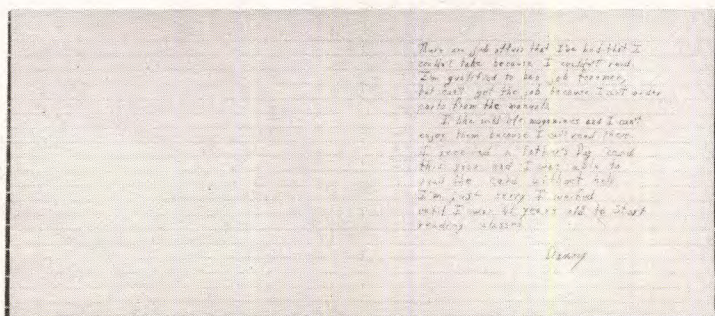 There are job offers that I've had that I
couldn't take because I couldn't read.
I'm qualified to be a job foreman,
but can't get the job because I can't order
parts from the manuals.
I like wild life magazines and I can't
enjoy them because I can't read them.
I received a Father's Day card
this year and I was able to
read the card without help.
I'm just sorry I waited
until I was 41 years old to start
reading classes.
Danny